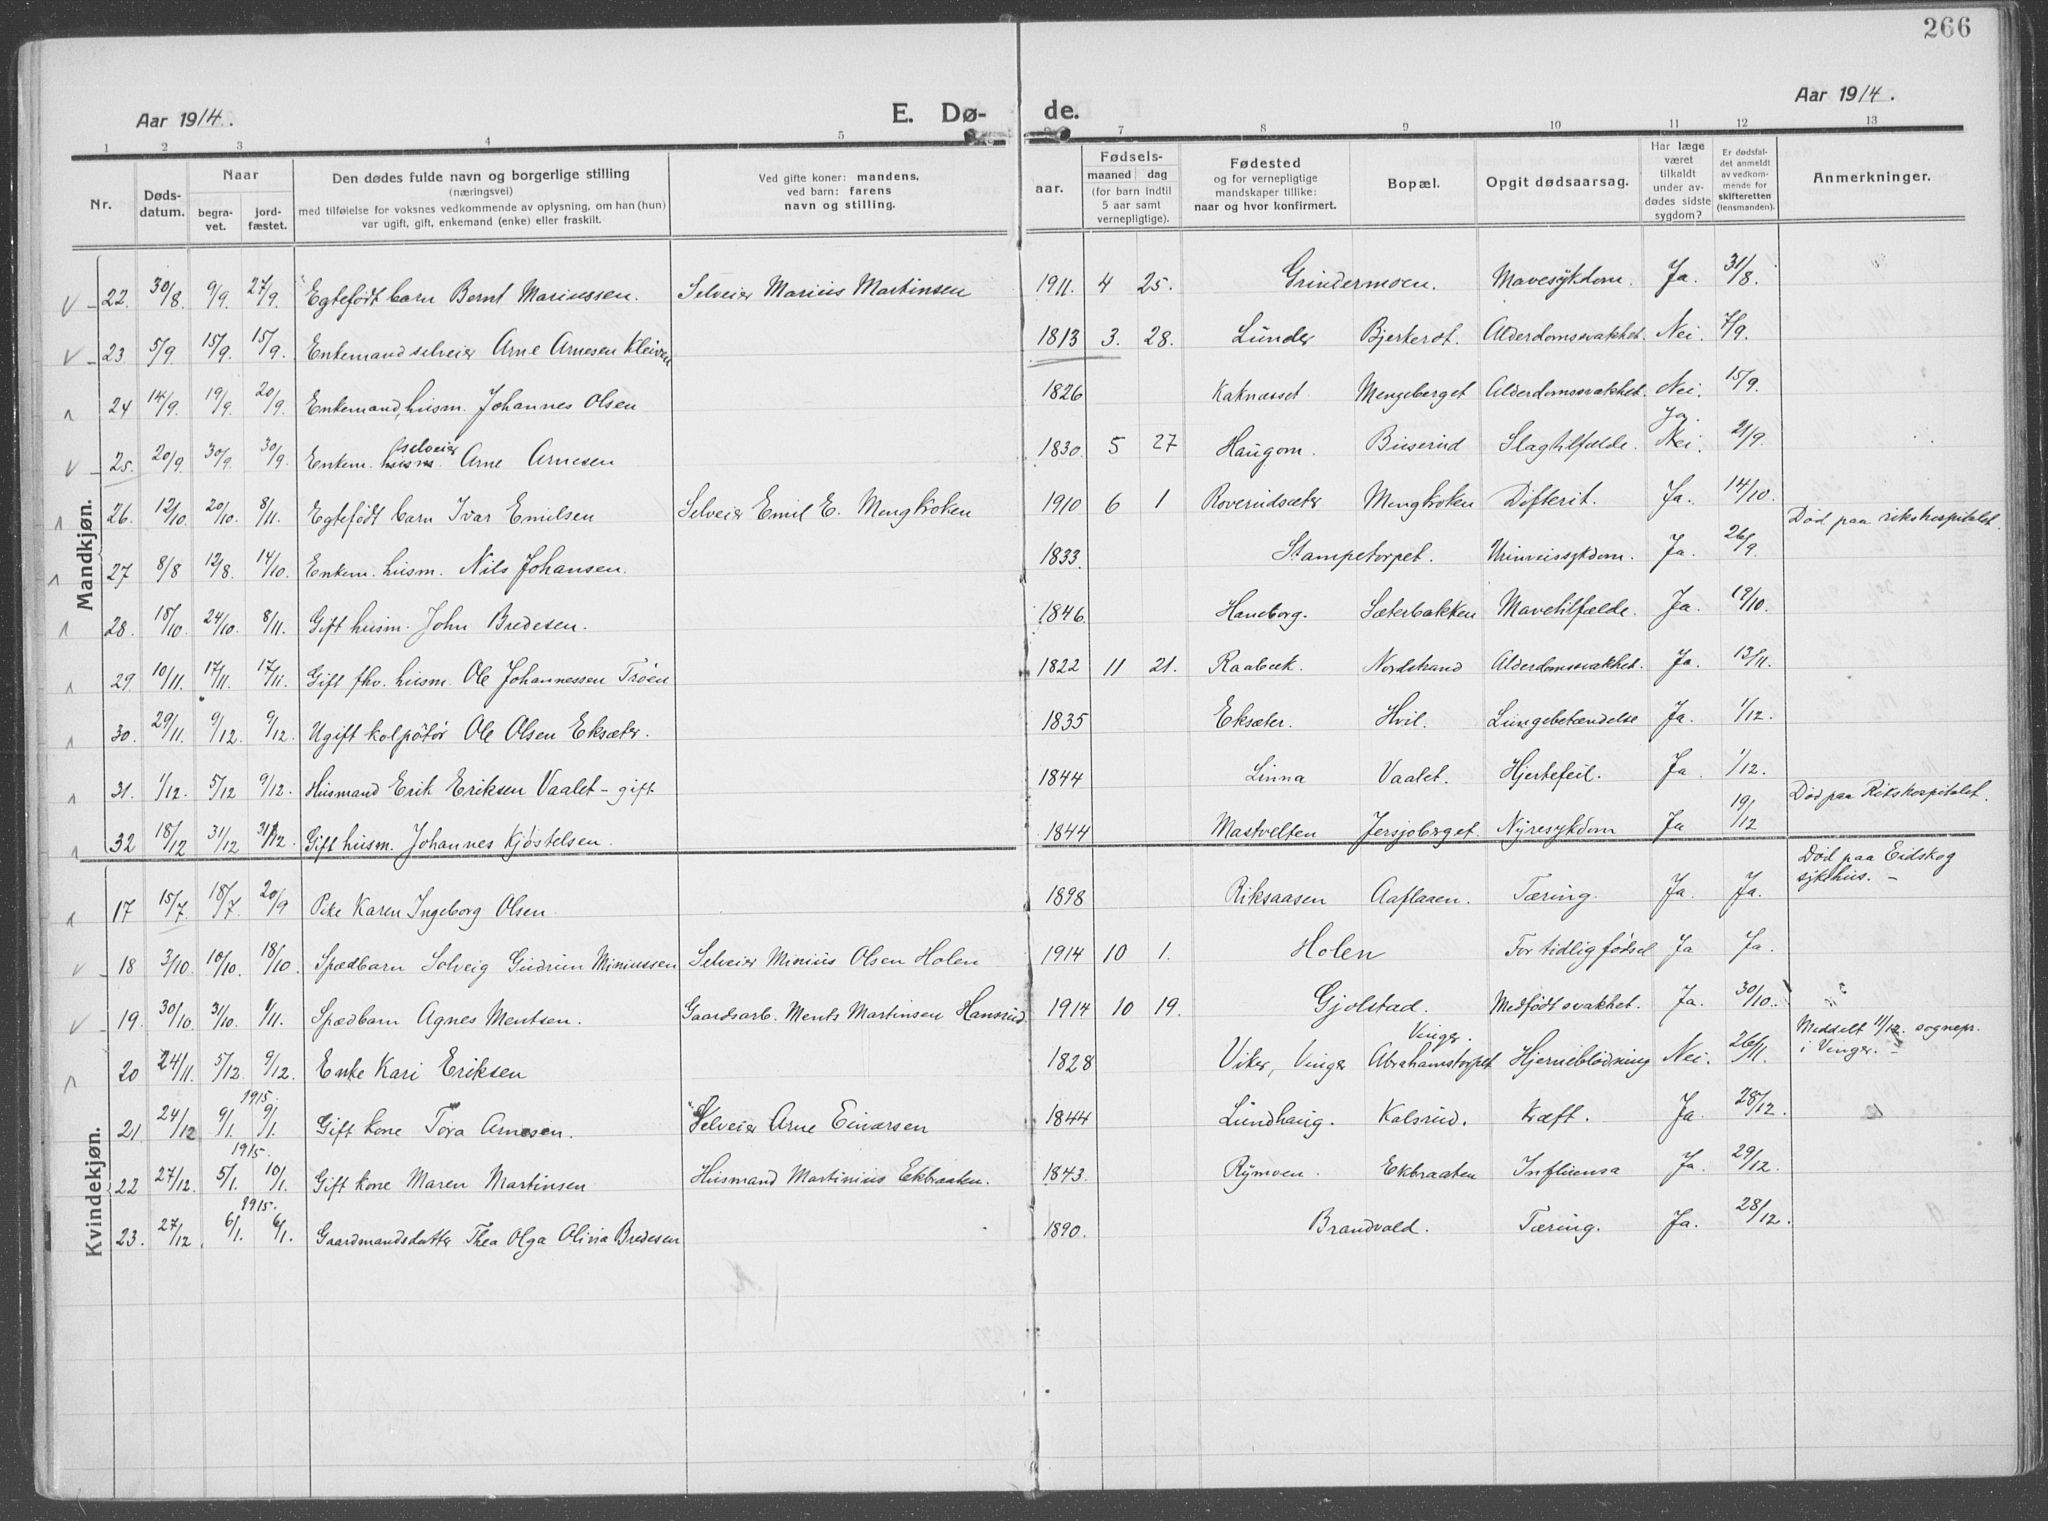 266
Aar 1914.
E. Dø-
de.
Aar 1914.
1 2 3 4 5 7 8 9 10 11 12 13
Nr. Døds-datum. Naar begra-vet. jord-fæstet. Den dødes fulde navn og borgerlige stilling (næringsvei) med tilføielse for voksnes vedkommende av oplysning, om han (hun) var ugift, gift, enkemand (enke) eller fraskilt. Ved gifte koner: mandens, ved barn: farens navn og stilling. aar. Fødsels- maaned dag (for barn indtil 5 aar samt vernepligtige). Fødested og for vernepligtige mandskaper tillike: naar og hvor konfirmert. Bopæl. Opgit dødsaarsag. Har læge været tilkaldt under av-dødes sidste sygdom? Er dødsfal-det anmeldt av vedkom-mende for skifteretten (lensmanden). Anmerkninger.
Mandkjøn.
22. 30/8. 9/9. 27/9. Egtefødt barn Bernt Mariussen. Selveier Marius Martinsen 1911. 4 25. Grindermoen. Mavesykdom. Ja. 31/8.
23. 5/9. 15/9. 15/9. Enkemand selveier Arne Arnesen Kleiven 1813 3. 28. Lunder Bjerkerdt. Alderdomssvakhet. Nei. 7/9.
24 14/9. 19/9. 20/9. Enkemand, husm. Johannes Olsen 1826 Kaknæsset Mengeberget Alderdomssvækhet. Nei. 15/9.
25. 20/9. 30/9. 30/9. Enkem. husm. selveier Arne Arnesen 1830. 5 27 Haugom. Buserud Slagtilfælde. Nei. Ja. 21/9.
26. 12/10. 20/10. 8/11. Egtefødt barn Ivar Emilsen Selveier Emil E. Mengkroken 1910 6 1 Roverudsæter Mengkroken Difterit. Ja. 14/10.
27 8/8 12/8. 14/10. Enkem. husm. Nils Johansen. 1833. Stampetorpet. Urinveissykdom. Ja. 26/9. Død paa rikshospitalet.
28. 18/10. 24/10. 8/11. Gift husm. John Bredesen. 1846. Haneborg. Sæterbakken Mavetilfælde. Ja. 19/10.
29. 10/11. 17/11. 17/11. Gift fhv. husm. Ole Johannessen Trøen 1822 11 21. Raabæk. Nordstrand Alderdomssvakhet. Ja. 13/11.
30. 29/11. 9/12. 9/12. Ugift kolpøtør Ole Olsen Eksæter. 1835 Eksæter. Hvil. Lungebetændelse Ja. 1/12.
31. 1/12. 5/12 9/12. Husmand Erik Eriksen Vaalet - gift 1844 Linna Vaalet. Hjertefeil. Ja. 1/12.
32 18/12 31/12 31/12. Gift husm. Johannes Kjøstelsen. 1844 Mastvelten Jersjoberget. Nyresykdom Ja 19/12 Død paa Rikshospitalet.
Kvindekjøn.
17 15/7 18/7 20/9 Pike Karen Ingeborg Olsen. 1898 Riksaasen Aaflaaen. Tæring. Ja. Ja. Død paa Eidskog sykehus. -
18 3/10. 10/10. 18/10. Spædbarn Solveig Gudrun Miniussen Selveier Minius Olsen Holen 1914 10 1. Holen For tidlig fødsel Ja Ja.
19. 30/10. 31/10. 1/11. Spædbarn Agnes Mentsen. Gaardsarb. Ments Martinsen Hansrud. 1914 10 19. Gjolstad. Medfødt svakhet. Ja. 30/10.
20 24/11. 5/12. 9/12. Enke Kari Eriksen 1828 Viker, Vinger Abrahamstorpet Vinger. Hjerneblødning Nei. 26/11. Meddelt 11/12. sognepr. i Vinger. -
21. 24/12 1915. 9/1. 9/1. Gift kone Tora Arnesen. Selveier Arne Einarsen 1844 Lundhaug. Kalsrud. Kræft. Ja. 28/12.
22 27/12. 1915. 5/1. 10/1. Gift kone Maren Martinsen Husmand Martinius Ekbraaten. 1843. Rymoen. Ekbraaten Influensa Ja. 29/12.
23. 27/12. 1915. 6/1. 6/1. Gaardmandsdatter Thea Olga Olivia Bredesen 1890. Brandvold. Tæring. Ja. 28/12.